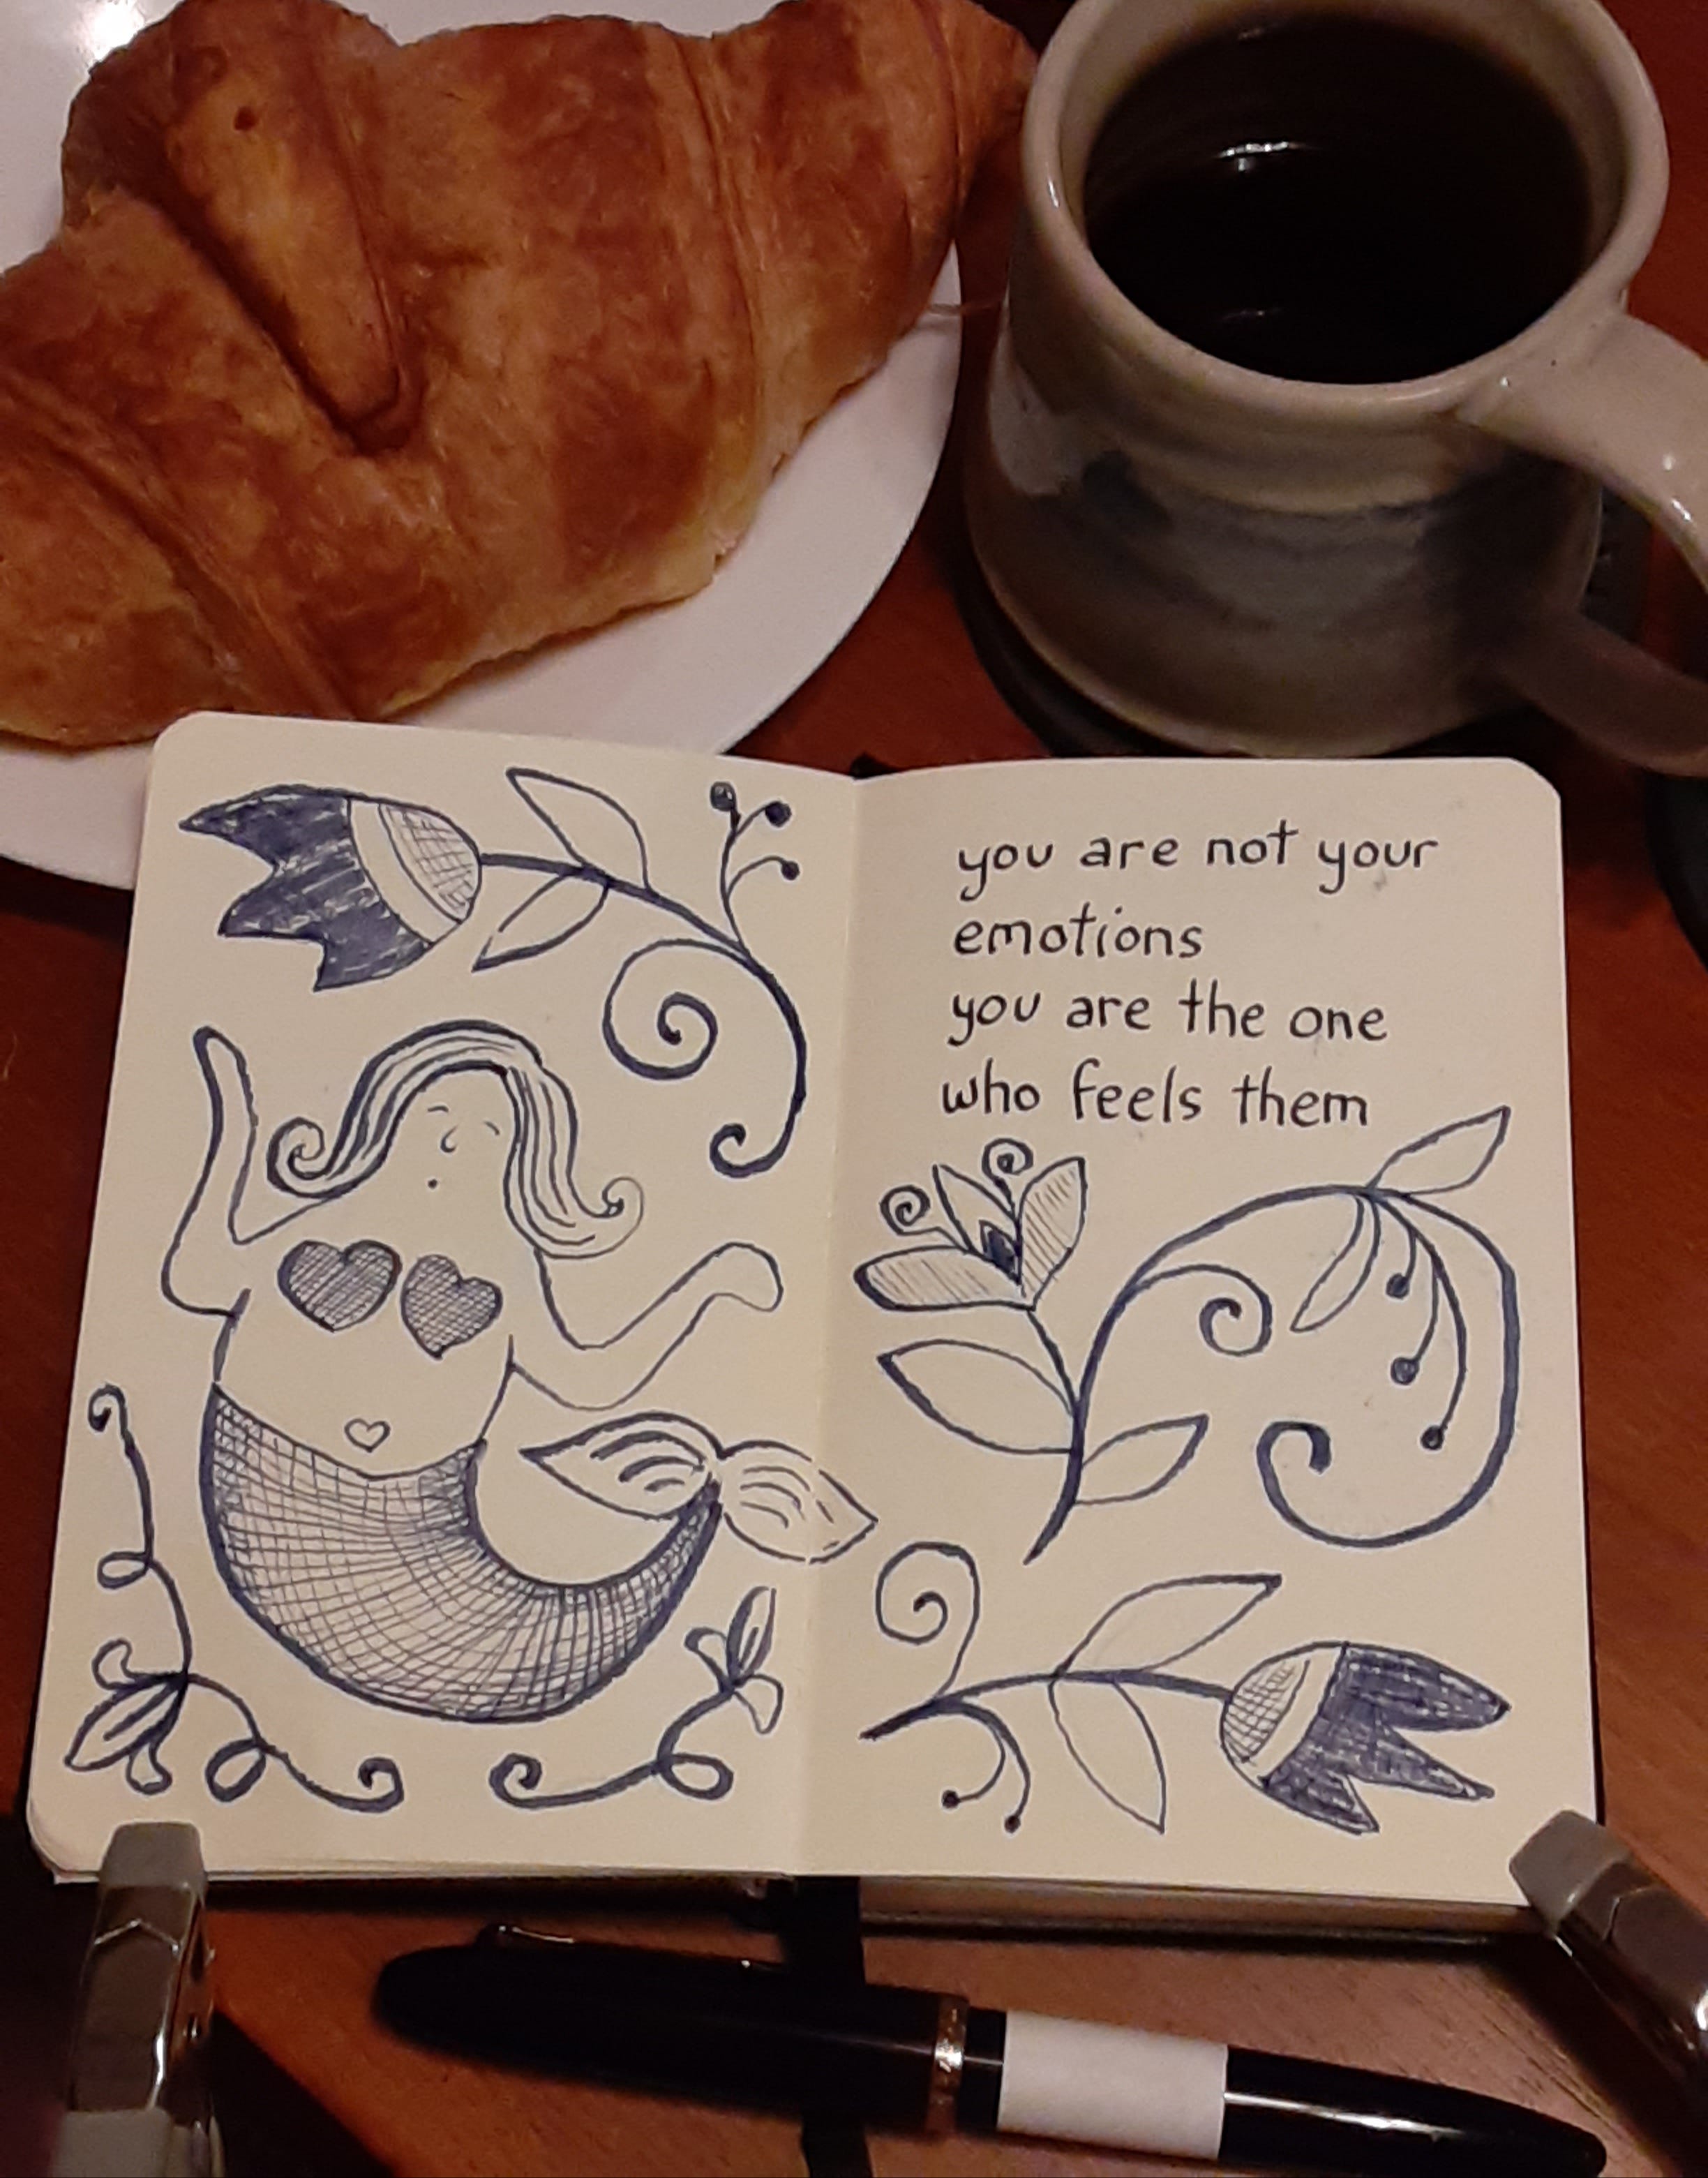 you are not your
emotions
you are the one
who feels them